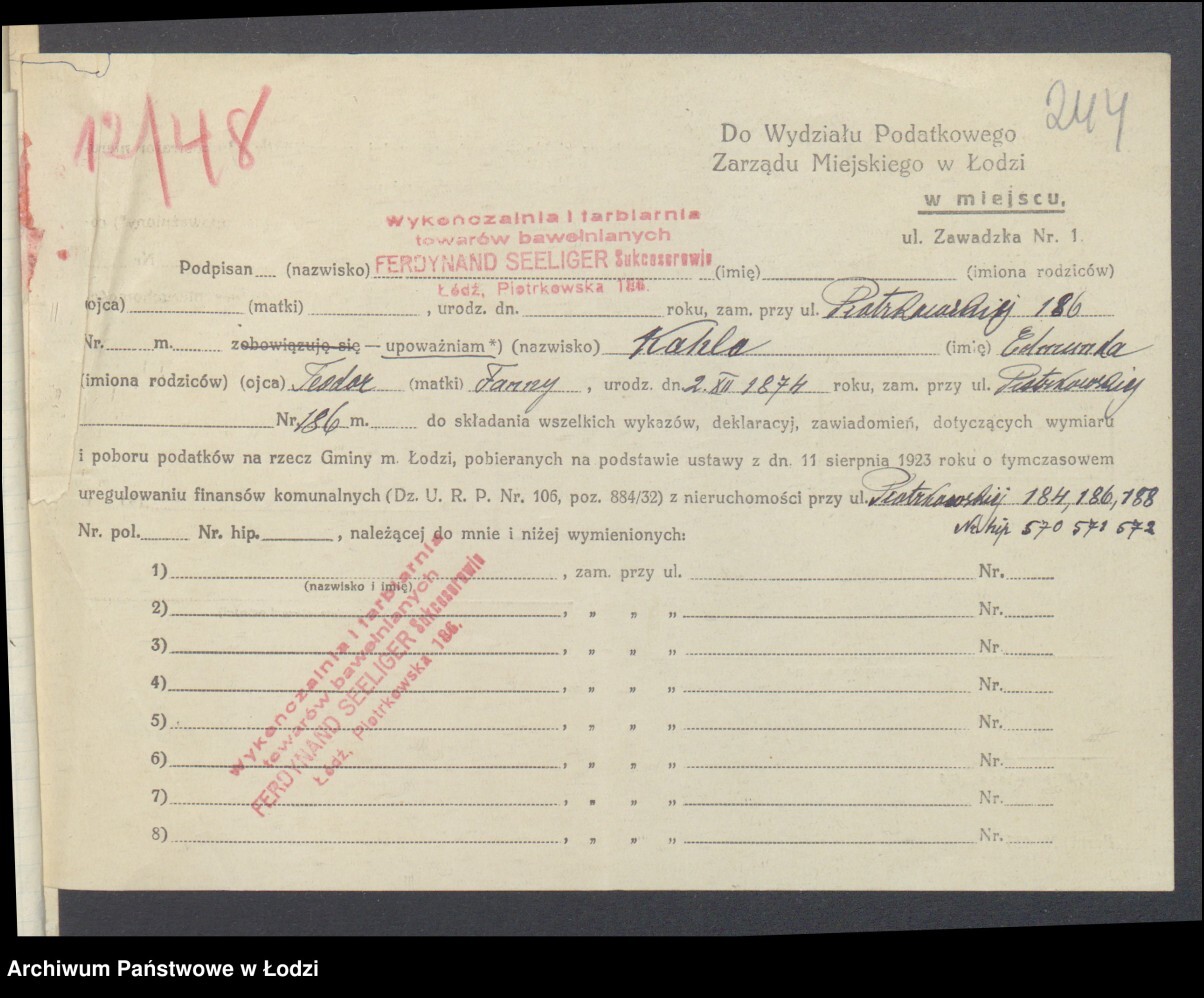 12/48
244
Do Wydziału Podatkowego
Zarządu Miejskiego w Łodzi
w miejscu,
ul. Zawadzka Nr. 1.
Wykończalnia i farbiarnia
towarów bawełnianych
FERDYNAND SEELIGER Sukcesorowie
Łódź, Piotrkowska 186.
Podpisan (nazwisko) (imię) (imiona rodziców)
(ojca) (matki) , urodz. dn. roku, zam. przy ul. Piotrkowskiej 186
Nr. m. zobowiązuję się — upoważniam *) (nazwisko) Kahle (imię) Edmunda
(imiona rodziców) (ojca) Teodor (matki) Fanny , urodz. dn. 2.XII 1874 roku, zam. przy ul. Piotrkowskiej
Nr. 186 m. do składania wszelkich wykazów, deklaracyj, zawiadomień, dotyczących wymiaru
i poboru podatków na rzecz Gminy m. Łodzi, pobieranych na podstawie ustawy z dn. 11 sierpnia 1923 roku o tymczasowem
uregulowaniu finansów komunalnych (Dz. U. R. P. Nr. 106, poz. 884/32) z nieruchomości przy ul. Piotrkowskiej 184, 186, 188
Nr. pol. Nr. hip. , należącej do mnie i niżej wymienionych: Nr. hip 570 571 572
1) , zam. przy ul. Nr.
(nazwisko i imię)
2) , „ „ „ Nr.
3) , „ „ „ Nr.
4) , „ „ „ Nr.
5) , „ „ „ Nr.
6) , „ „ „ Nr.
7) , „ „ „ Nr.
8) , „ „ „ Nr.
Wykończalnia i farbiarnia
towarów bawełnianych
FERDYNAND SEELIGER Sukcesorowie
Łódź, Piotrkowska 186.
Archiwum Państwowe w Łodzi